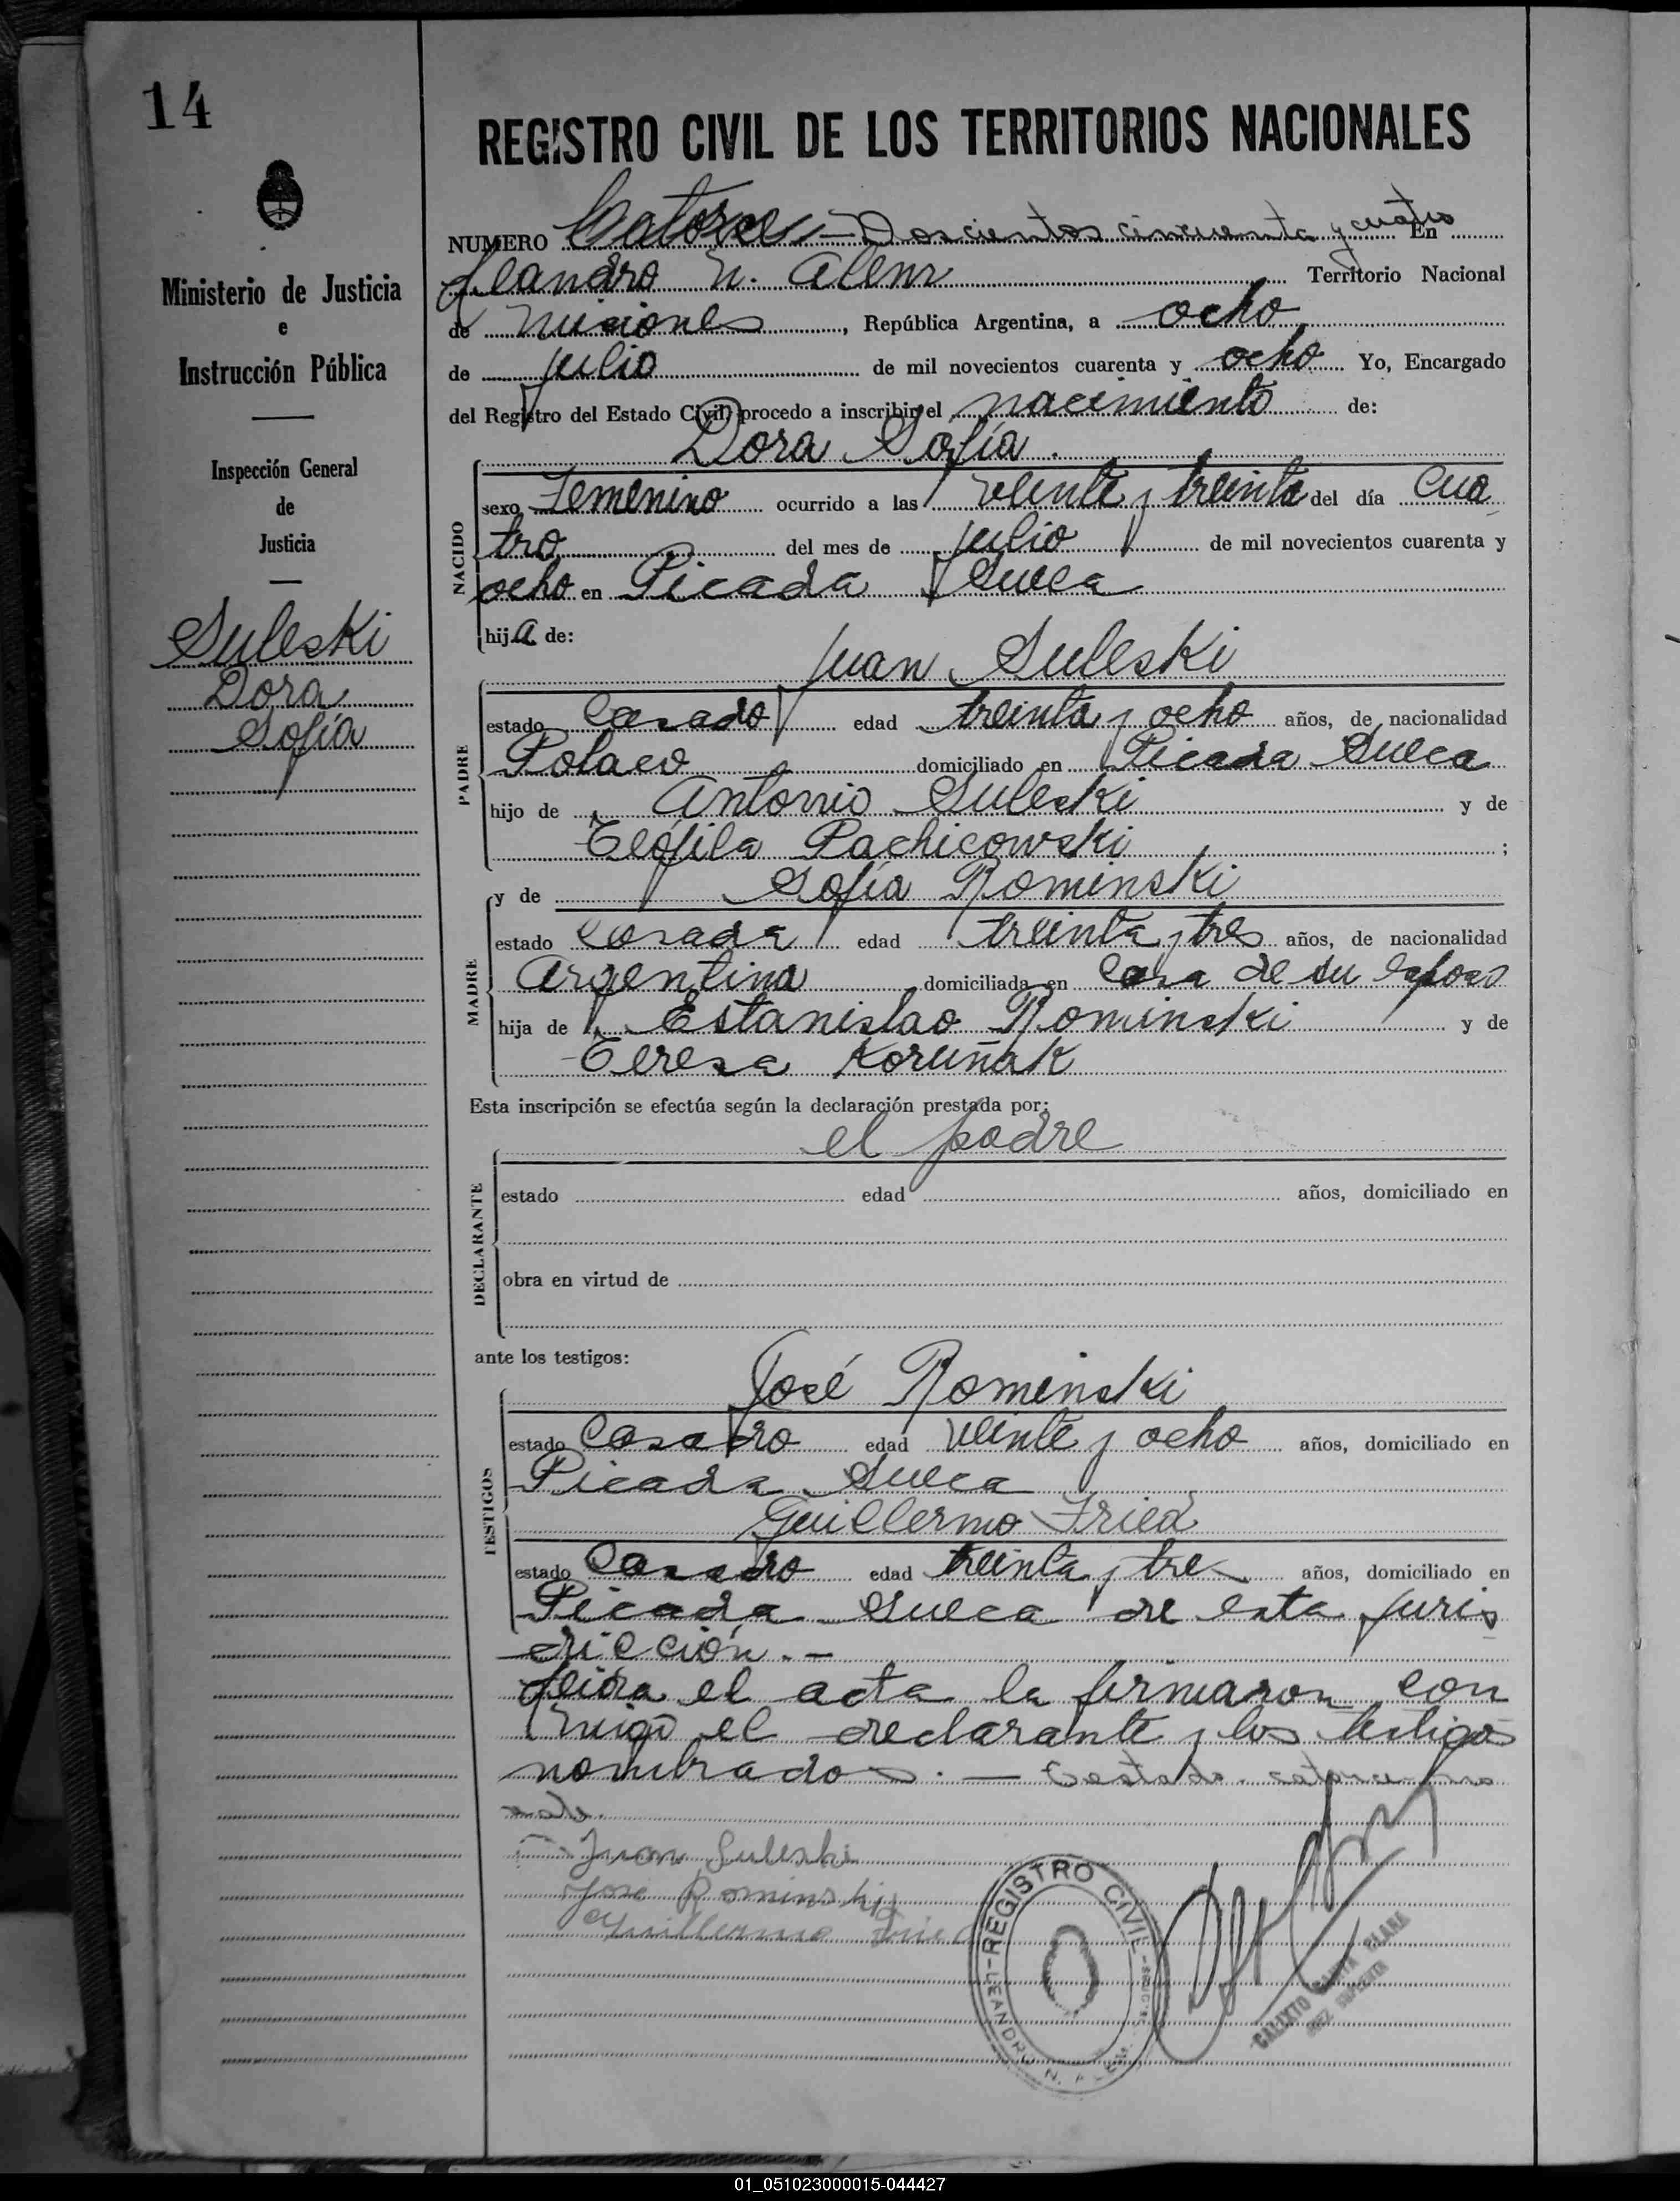 14
Ministerio de Justicia
e
Instrucción Pública
Inspección General
de
Justicia
Suleski
Dora
Sofía
REGISTRO CIVIL DE LOS TERRITORIOS NACIONALES
NUMERO Catorce - Doscientos cincuenta y cuatro En
Leandro N. Alem Territorio Nacional
de Misiones, República Argentina, a ocho
de julio de mil novecientos cuarenta y ocho Yo, Encargado
del Registro del Estado Civil, procedo a inscribir el nacimiento de:
Dora Sofía.
NACIDO
sexo Femenino ocurrido a las veinte y treinta del día cua
tro del mes de julio de mil novecientos cuarenta y
ocho en Picada Sueca
hija de:
Juan Suleski
PADRE
estado Casado edad treinta y ocho años, de nacionalidad
Polaco domiciliado en Picada Sueca
hijo de Antonio Suleski y de
Teófila Pachicowski;
y de Sofía Rominski
MADRE
estado Casada edad treinta y tres años, de nacionalidad
Argentina domiciliada en Casa de su esposo
hija de Estanislao Rominski y de
Teresa Koruñak
Esta inscripción se efectúa según la declaración prestada por:
el padre
DECLARANTE
estado edad años, domiciliado en
obra en virtud de
ante los testigos:
José Rominski
TESTIGOS
estado Casado edad veinte y ocho años, domiciliado en
Picada Sueca
Guillermo Fried
estado Casado edad treinta y tres años, domiciliado en
Picada Sueca de esta juris
dicción.-
Leída el acta la firmaron con
migo el declarante y los testigos
nombrados.- Testado: catorce no
vale.
Juan Suleski
José Rominski
Guillermo Fried
REGISTRO CIVIL
LEANDRO N. ALEM
CALIXTO SANTA CLARA
JUEZ SUPLENTE
01_051023000015-044427